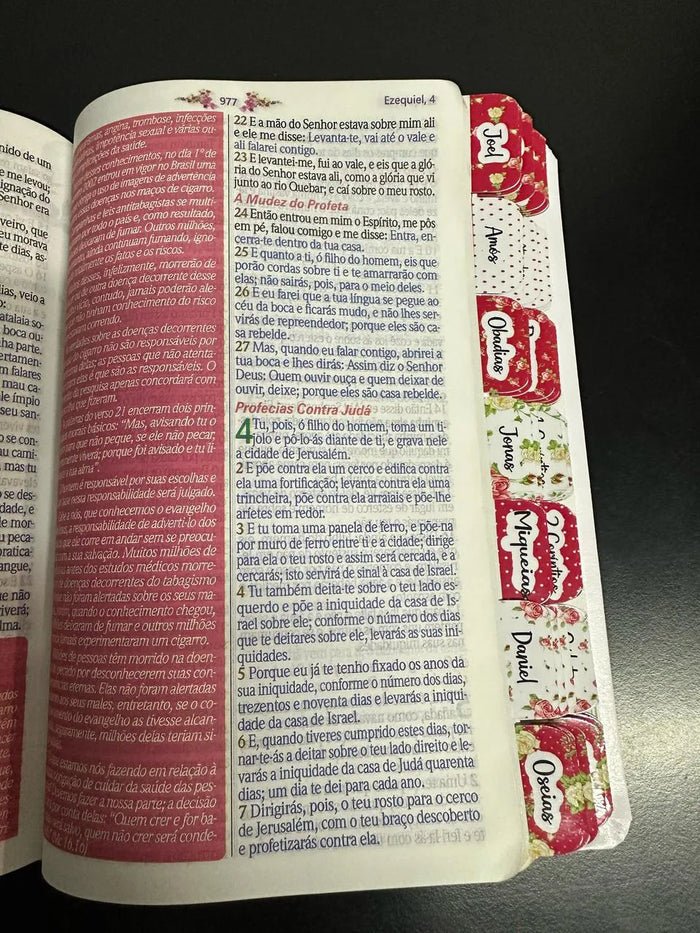 977
Ezequiel, 4
nido de um
e me levou;
ignação do
Senhor era
veiro, que
eu morava
te dias, as-
dias, veio a
atalaia so-
boca ou-
ha parte.
ertamen-
m falares
mau ca-
le ímpio
seu san-
o se con-
u cami-
mas tu
o se des-
dade, e
e mor-
u peca-
oratica-
angue,
ue não
viverá;
lma.
angina, trombose, infecções
impotência sexual e várias ou-
da saúde.
esses conhecimentos, no dia 1º de
2002 entrou em vigor no Brasil uma
uso de imagens de advertência
doenças nos maços de cigarro.
e leis antitabagistas se multi-
por todo o país e, como resultado,
deixaram de fumar. Outros milhões,
ainda continuam fumando, igno-
os fatos e os riscos.
desses, infelizmente, morrerão de
ou de outra doença decorrente desse
contudo, jamais poderão ale-
não tinham conhecimento do risco
correndo.
sobre as doenças decorrentes
do cigarro não são responsáveis por
delas; as pessoas que não atenta-
elas é que são as responsáveis. O
da pesquisa apenas concordará com
que fizeram.
do verso 21 encerram dois prin-
básicos: "Mas, avisando tu o
para que não peque, se ele não pecar,
viverá; porque foi avisado e tu li-
a tua alma".
é responsável por suas escolhas e
nessa responsabilidade será julgado.
nós, que conhecemos o evangelho
a responsabilidade de adverti-lo dos
que ele corre em andar sem se preocu-
a sua salvação. Muitos milhões de
antes dos estudos médicos morre-
doenças decorrentes do tabagismo
não foram alertadas sobre os seus ma-
quando o conhecimento chegou,
deixaram de fumar e outros milhões
jamais experimentaram um cigarro.
de pessoas têm morrido na doen-
por desconhecerem suas con-
eternas. Elas não foram alertadas
seus males, entretanto, se o co-
do evangelho as tivesse alcan-
milhões delas teriam si-
estamos nós fazendo em relação à
de cuidar da saúde das pes-
fazer a nossa parte; a decisão
conta delas: "Quem crer e for ba-
salvo, quem não crer será conde-
22 E a mão do Senhor estava sobre mim ali
e ele me disse: Levanta-te, vai até o vale e
ali falarei contigo.
23 E levantei-me, fui ao vale, e eis que a gló-
ria do Senhor estava ali, como a glória que vi
junto ao rio Quebar; e caí sobre o meu rosto.
A Mudez do Profeta
24 Então entrou em mim o Espírito, me pôs
em pé, falou comigo e me disse: Entra, en-
cerra-te dentro da tua casa.
25 E quanto a ti, ó filho do homem, eis que
porão cordas sobre ti e te amarrarão com
elas; não sairás, pois, para o meio deles.
26 E eu farei que a tua língua se pegue ao
céu da boca e ficarás mudo, e não lhes ser-
virás de repreendedor; porque eles são ca-
sa rebelde.
27 Mas, quando eu falar contigo, abrirei a
tua boca e lhes dirás: Assim diz o Senhor
Deus: Quem ouvir ouça e quem deixar de
ouvir, deixe; porque eles são casa rebelde.
Profecias Contra Judá
4 Tu, pois, ó filho do homem, toma um ti-
jolo e pô-lo-ás diante de ti, e grava nele
a cidade de Jerusalém.
2 E põe contra ela um cerco e edifica contra
ela uma fortificação; levanta contra ela uma
trincheira, põe contra ela arraiais e põe-lhe
aríetes em redor.
3 E tu toma uma panela de ferro, e põe-na
por muro de ferro entre ti e a cidade; dirige
para ela o teu rosto e assim será cercada, e a
cercarás; isto servirá de sinal à casa de Israel.
4 Tu também deita-te sobre o teu lado es-
querdo e põe a iniquidade da casa de Is-
rael sobre ele; conforme o número dos dias
que te deitares sobre ele, levarás as suas ini-
quidades.
5 Porque eu já te tenho fixado os anos da
sua iniquidade, conforme o número dos dias,
trezentos e noventa dias e levarás a iniqui-
dade da casa de Israel.
6 E, quando tiveres cumprido estes dias, tor-
nar-te-ás a deitar sobre o teu lado direito e le-
varás a iniquidade da casa de Judá quarenta
dias; um dia te dei para cada ano.
7 Dirigirás, pois, o teu rosto para o cerco
de Jerusalém, com o teu braço descoberto
e profetizarás contra ela.
Joel
Amós
Obadias
Jonas
Miqueias
2 Coríntios
Daniel
Oseias